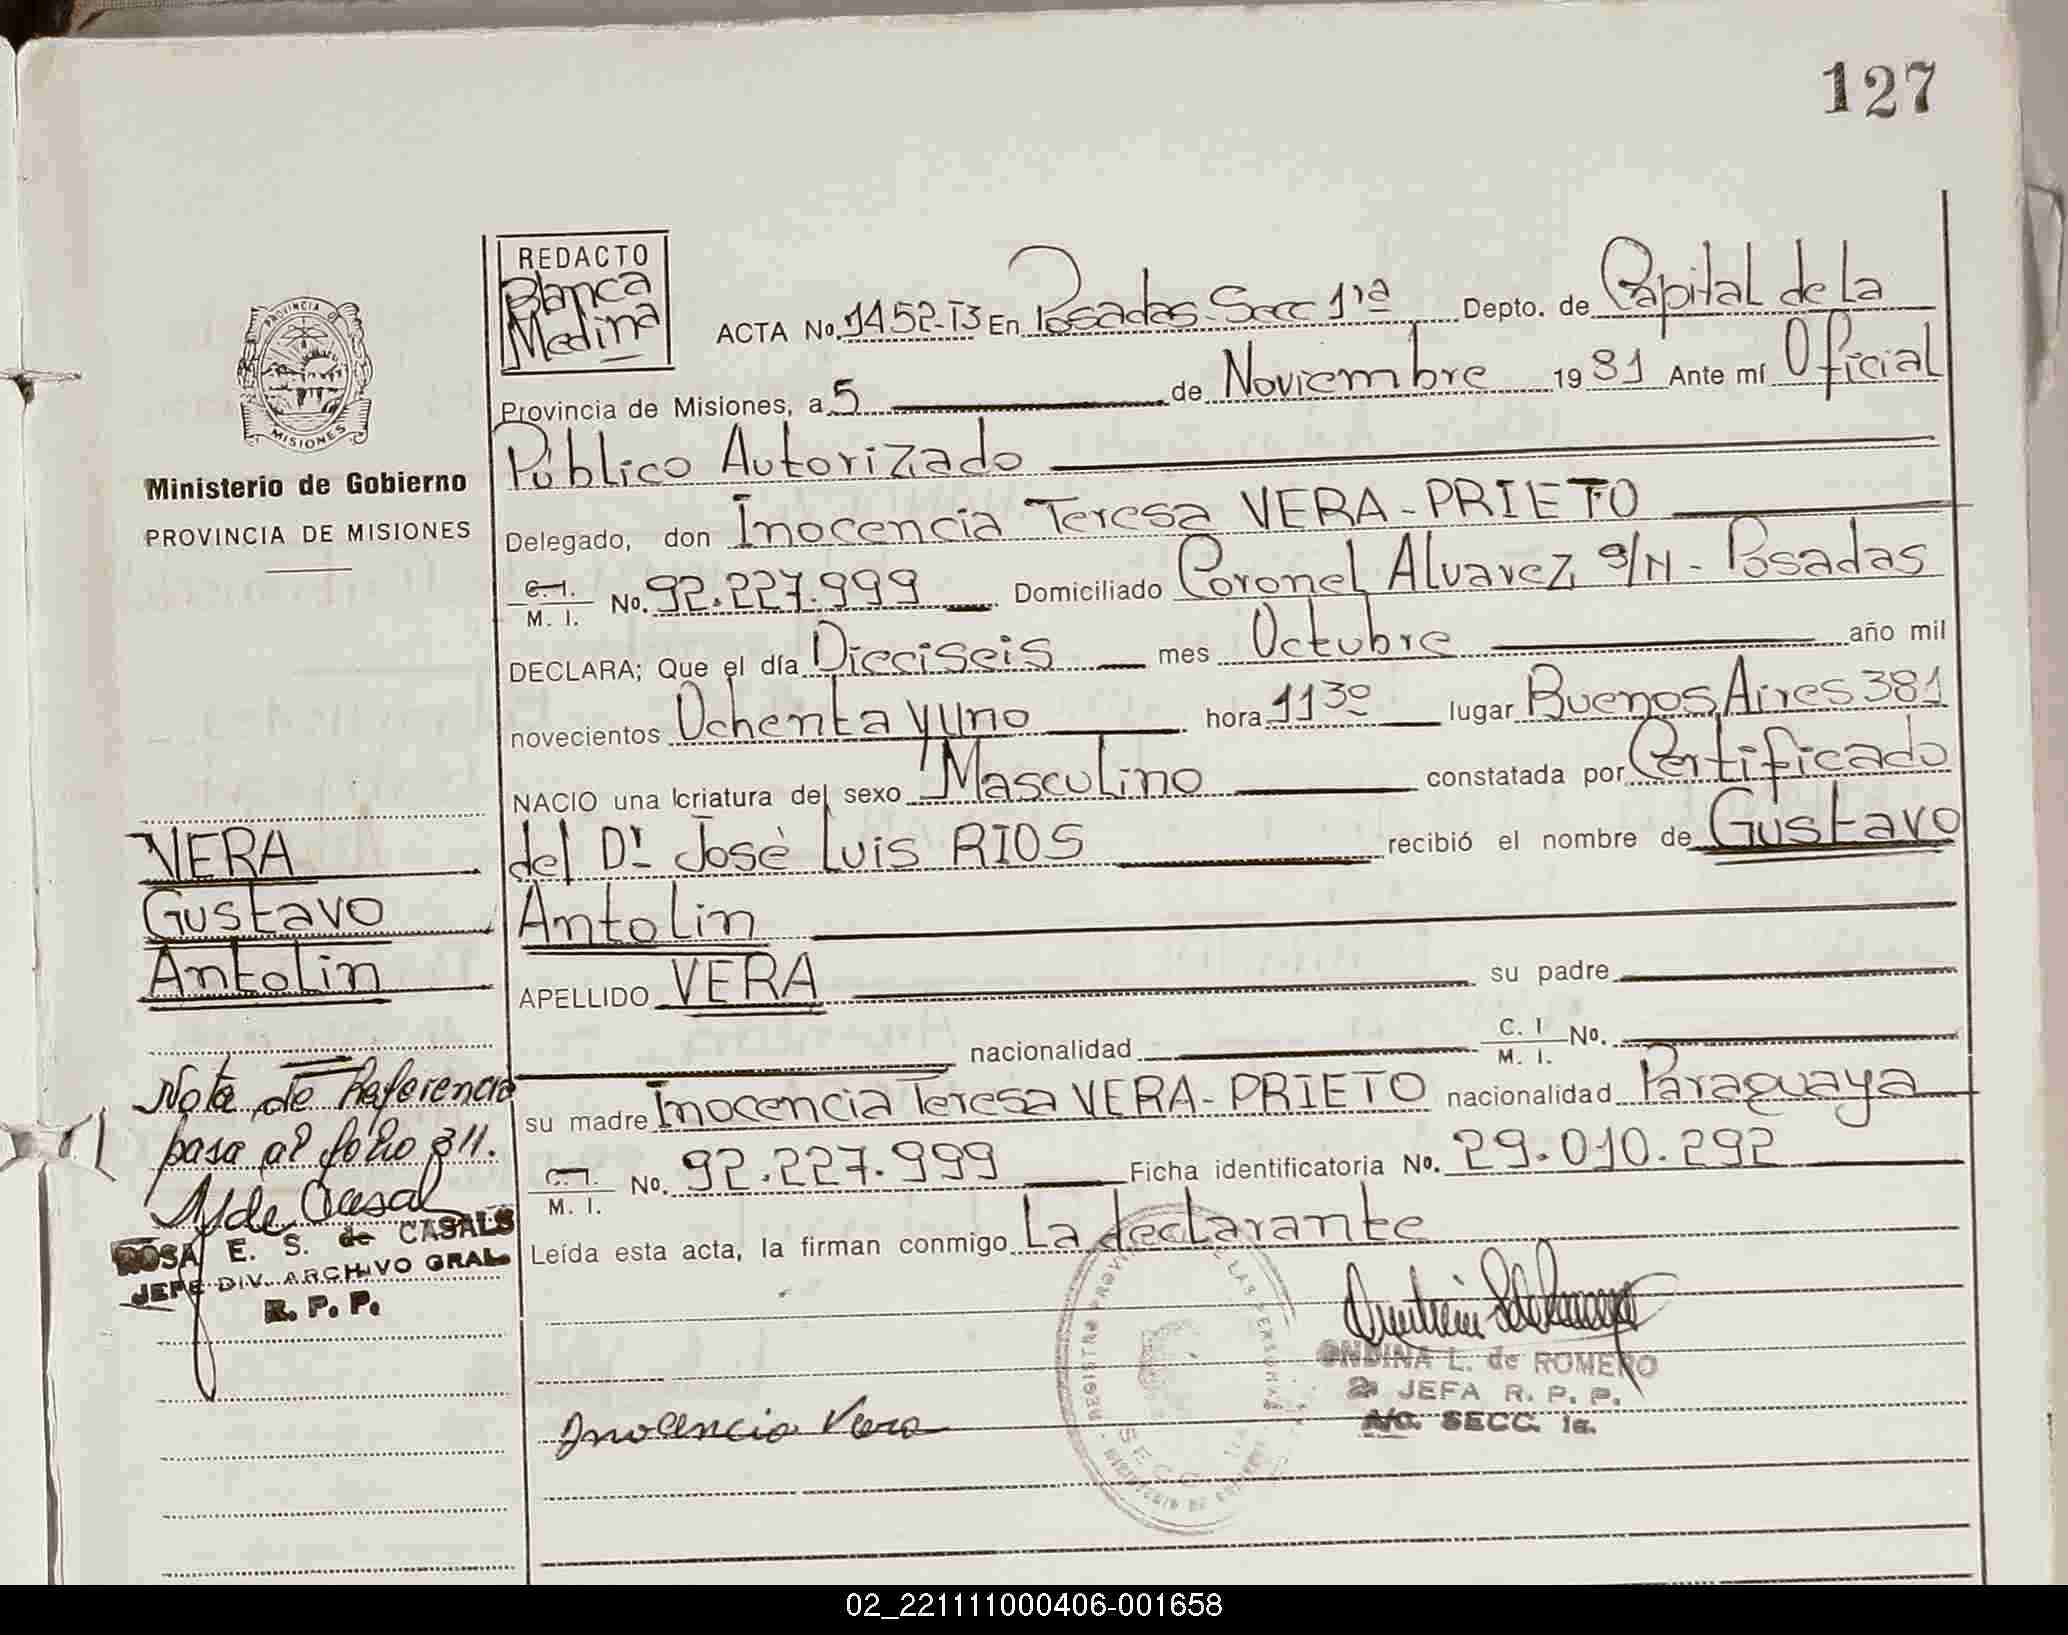 127
REDACTO
Blanca
Medina
ACTA No. 1452-T3 En Posadas-Secc 1ra Depto. de Capital de la
Provincia de Misiones, a 5 de Noviembre 1981 Ante mí Oficial
Público Autorizado
Delegado, don Inocencia Teresa VERA-PRIETO
C.I. M. I. No. 92.227.999 Domiciliado Coronel Alvarez s/N - Posadas
DECLARA; Que el día Dieciseis mes Octubre año mil
novecientos Ochenta y uno hora 1130 lugar Buenos Aires 381
NACIO una criatura del sexo Masculino constatada por Certificado
del Dr José Luis RIOS recibió el nombre de Gustavo
Antolin
APELLIDO VERA su padre
nacionalidad C. I M. I. No.
su madre Inocencia Teresa VERA-PRIETO nacionalidad Paraguaya
C.I. M. I. No. 92.227.999 Ficha identificatoria No. 29.010.292
Leída esta acta, la firman conmigo La declarante
Inocencia Vera
ONDINA L. de ROMERO
2a JEFA R. P. P.
A/C. SECC. 1a.
PROVINCIA DE
MISIONES
Ministerio de Gobierno
PROVINCIA DE MISIONES
VERA
Gustavo
Antolin
Nota de Referencia
pasa al folio 311.
ROSA E. S. de CASALS
JEFE DIV. ARCHIVO GRAL.
R. P. P.
02_221111000406-001658